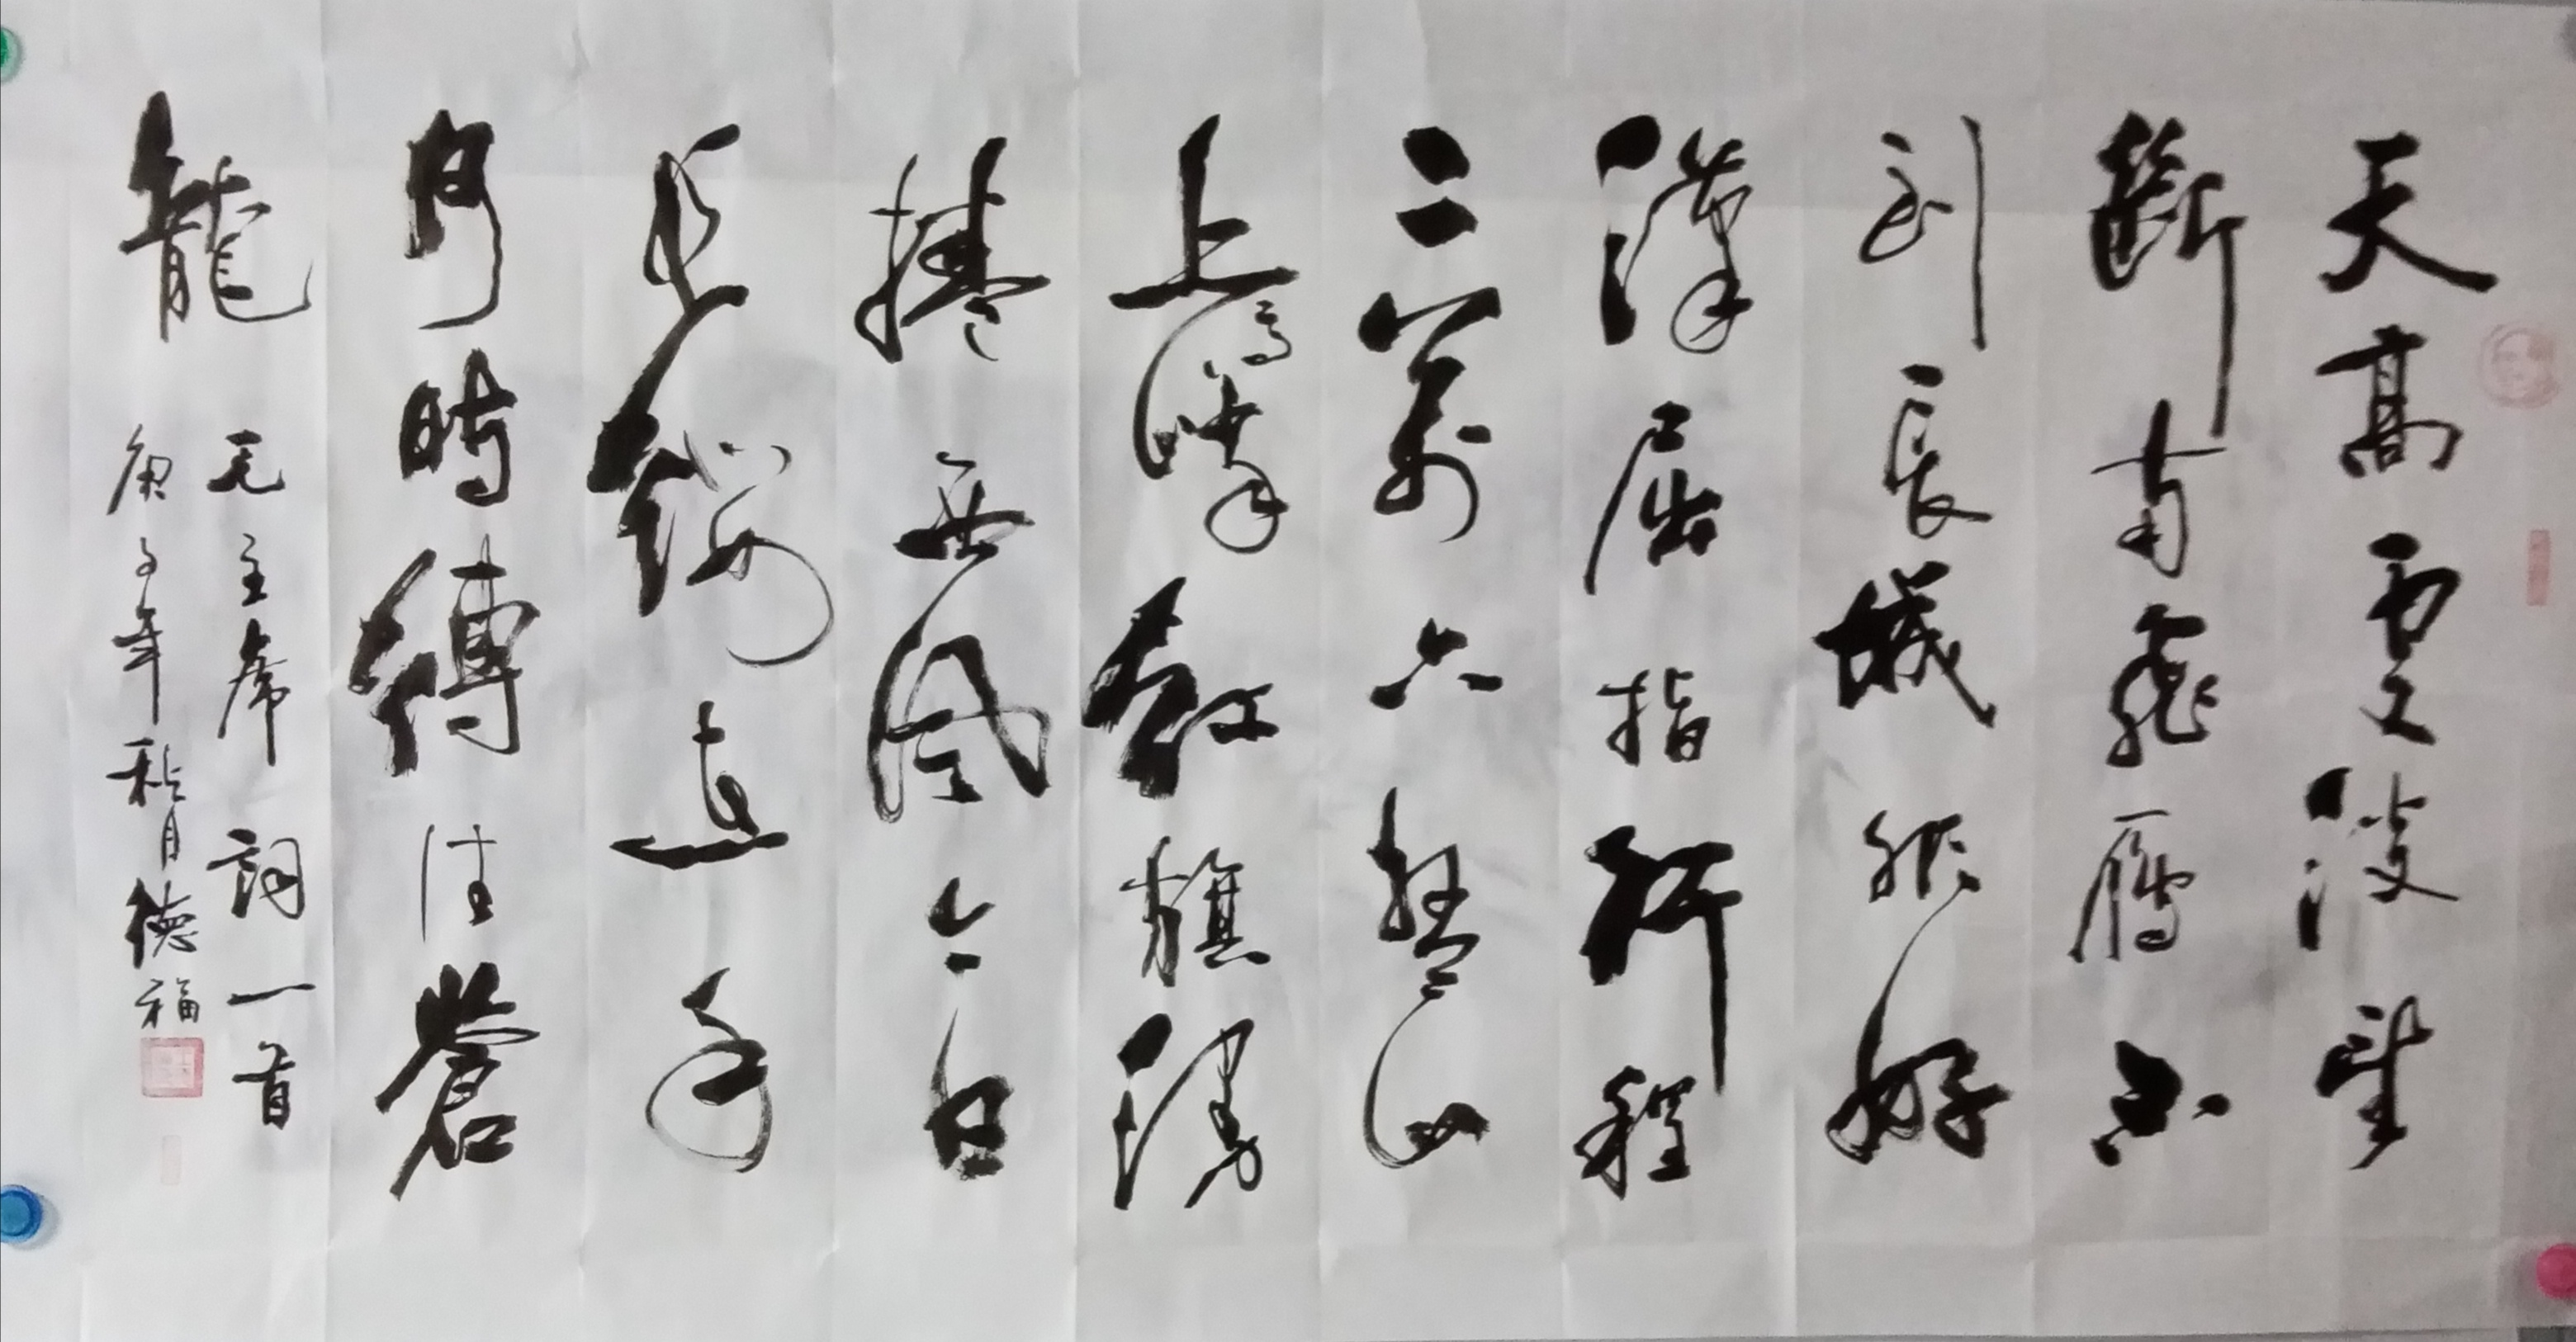 天高雲淡望
斷南飛雁不
到長城非好
漢屈指行程
二萬六盤山
上高峰紅旗漫
捲西風今日
長纓在手
何時縛住蒼
龍
毛主席詞一首
庚子年秋月德福